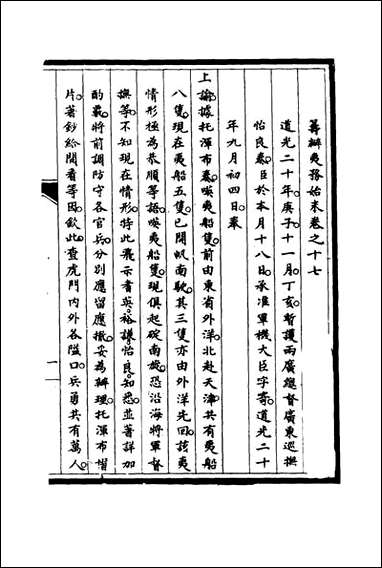 籌辦夷務始末卷之十七
道光二十年庚子十一月丁亥暫護兩廣總督廣東巡撫
怡良奏臣於本月十八日承准軍機大臣字寄道光二十
年九月初四日奉
上諭據托渾布奏㗲夷船隻前由東省外洋北赴天津共有夷船
八隻現在夷船五隻已開帆南駛其三隻亦由外洋先回該夷
情形極為恭順等語㗲夷船隻現俱起碇南旋恐沿海將軍督
撫等不知現在情形特此飛示耆英裕謙怡良知悉並著詳加
酌覈將前調防守各官兵分別應留應撤妥為辦理托渾布摺
片著鈔給閱看等因欽此查虎門內外各隘口兵勇共有萬人